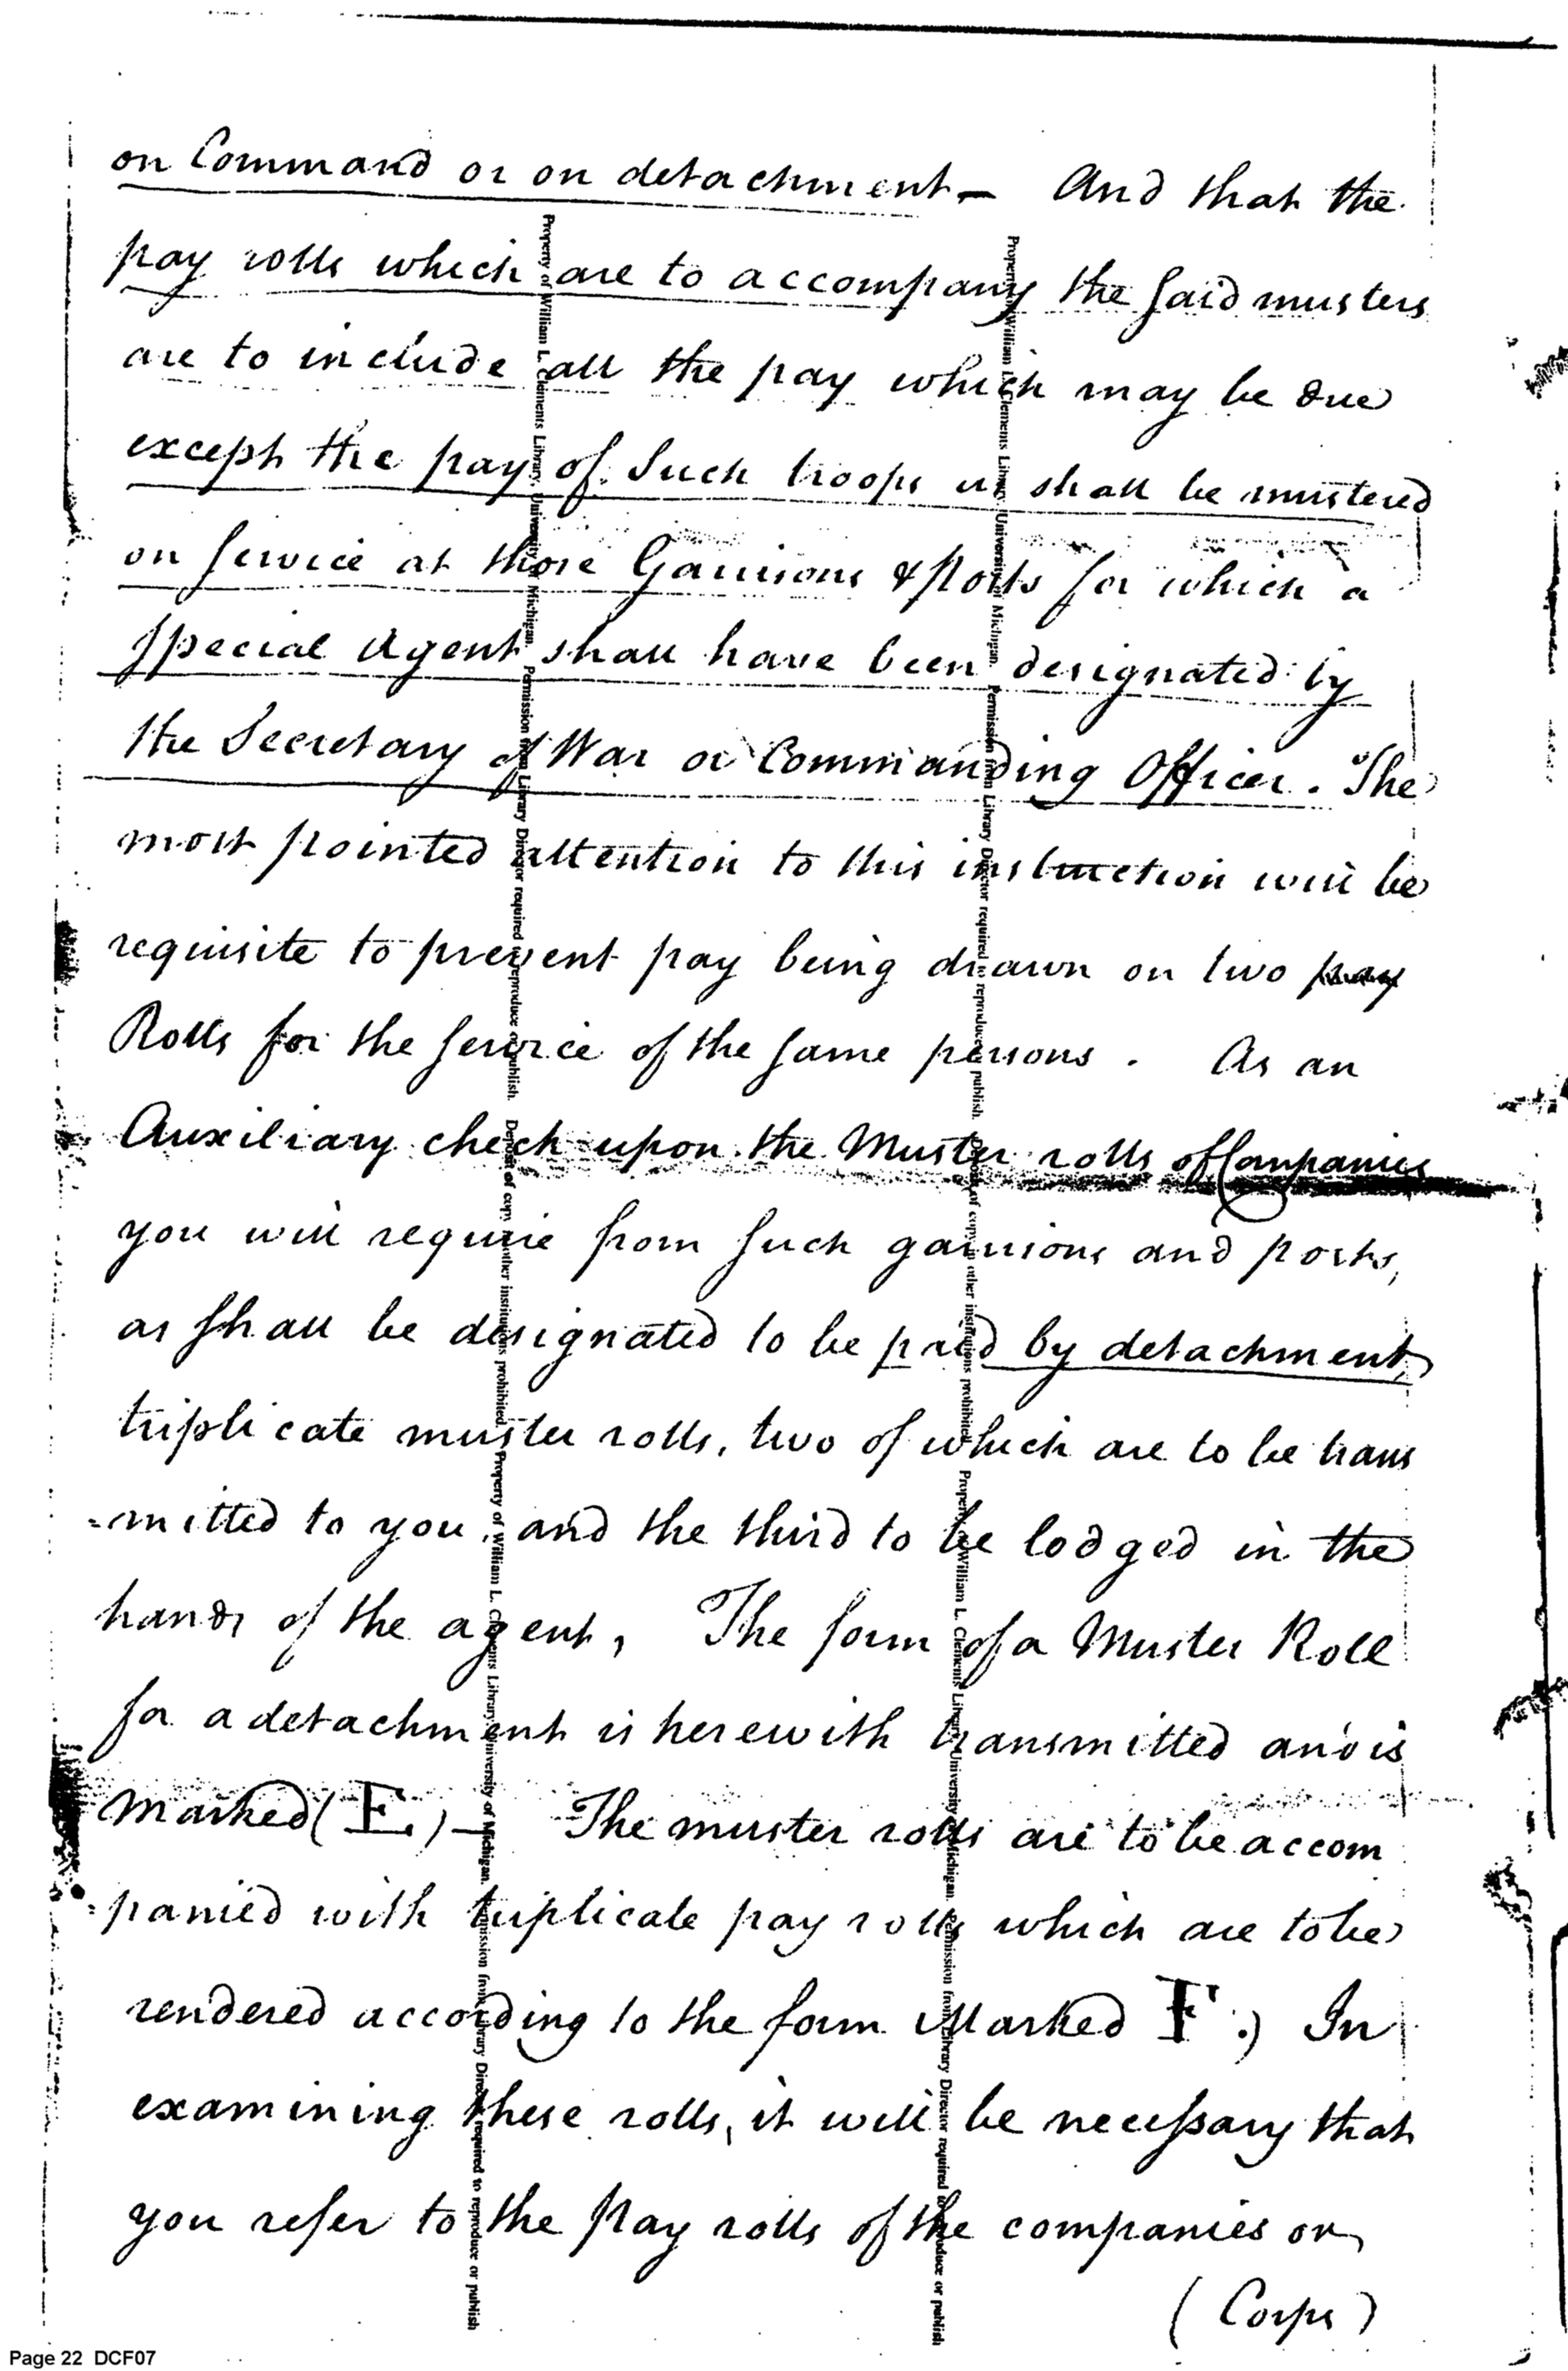 on Command or on detachment — And that the
pay rolls which are to accompany the said musters
are to include all the pay which may be due
except the pay of such troops as shall be mustered
on service at those Garrisons & Posts for which a
special Agent shall have been designated by
the Secretary of War or Commanding Officer. The
most pointed attention to this instruction will be
requisite to prevent pay being drawn on two pay
Rolls for the service of the same persons. As an
Auxiliary check upon the Muster rolls of Companies
you will require from such garrisons and posts,
as shall be designated to be paid by detachment,
triplicate muster rolls, two of which are to be trans
=mitted to you, and the third to be lodged in the
hands of the agent, The form of a Muster Roll
for a detachment is herewith transmitted and is
Marked (E) — The muster rolls are to be accom
=panied with triplicate pay rolls which are to be
rendered according to the form Marked F.) In
examining these rolls, it will be necessary that
you refer to the Pay rolls of the companies or
(Corps)
Property of William L. Clements Library, University of Michigan. Permission from Library Director required to reproduce or publish. Deposit of copy in other institutions prohibited. Property of William L. Clements Library, University of Michigan. Permission from Library Director required to reproduce or publish
Property of William L. Clements Library, University of Michigan. Permission from Library Director required to reproduce or publish. Deposit of copy in other institutions prohibited. Property of William L. Clements Library, University of Michigan. Permission from Library Director required to reproduce or publish
Page 22 DCF07